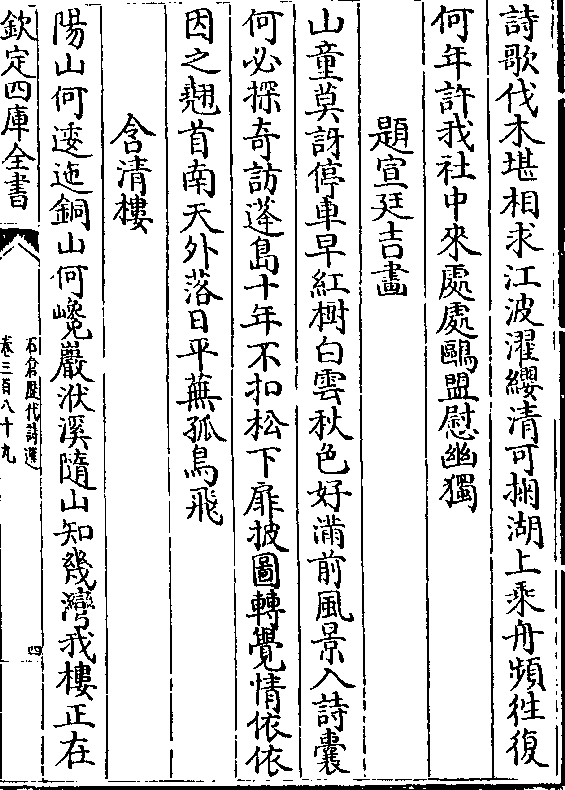 詩歌伐木堪相求江波濯纓清可掬湖上乘舟頻往復
何年許我社中來處處鷗盟慰幽獨
題宣廷吉畫
山童莫訝停車早紅樹白雲秋色好滿前風景入詩囊
何必探奇訪蓬島十年不扣松下扉披圖轉覺情依依
因之翹首南天外落日平蕪孤鳥飛
含清樓
陽山何逶迤銅山何巉巖洑溪隨山知幾灣我樓正在
欽定四庫全書
石倉歷代詩選
卷三百八十九
四